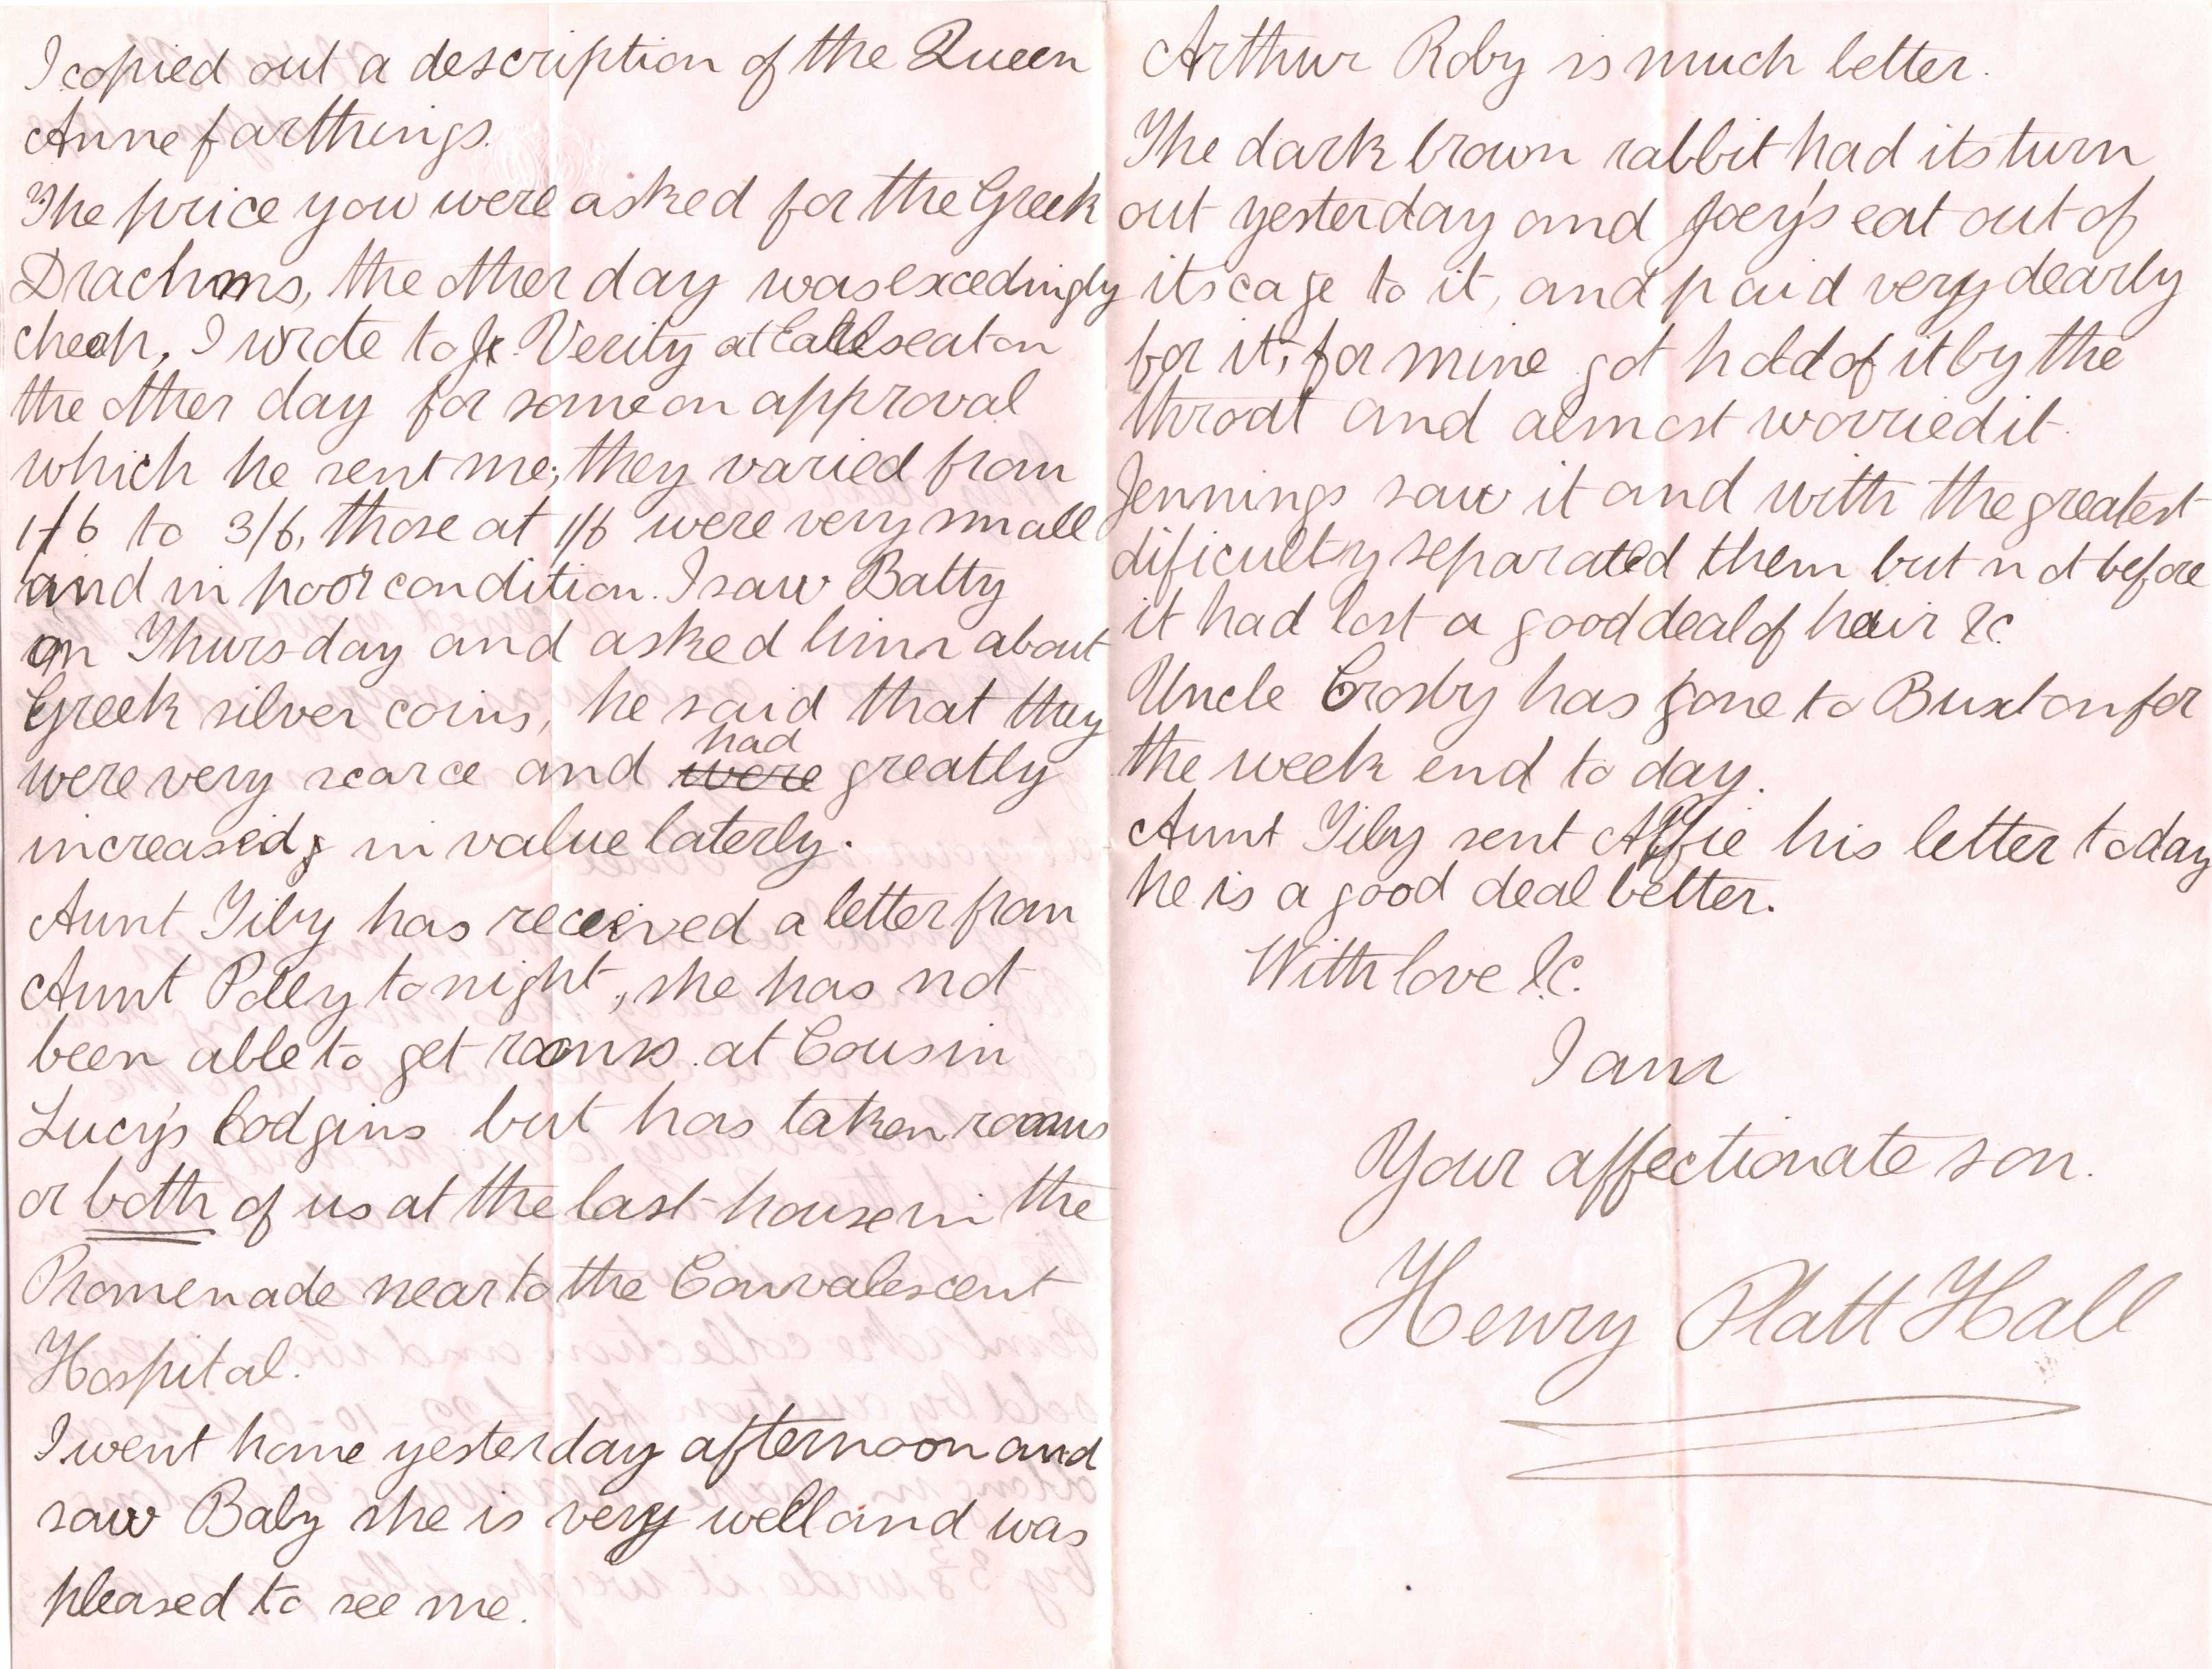 I copied out a description of the Queen
Anne farthings.
The price you were asked for the Greek
Drachms, the other day was excedingly
cheap, I wrote to Jr. Verity at Ealseaton
the other day for some on approval
which he sent me; they varied from
1/6 to 3/6, those at 1/6 were very small
and in poor condition. I saw Batty
on Thursday and asked him about
Greek silver coins, he said that they
were very scarce and were had greatly
increased in value laterly.
Aunt Tiby has received a letter from
Aunt Polly tonight, she has not
been able to get rooms at Cousin
Lucy's lodgins but has taken rooms
or both of us at the last house in the
Promenade near to the Convalescent
Hospital.
I went home yesterday afternoon and
saw Baby she is very well and was
pleased to see me.
Arthur Roby is much better.
The dark brown rabbit had its turn
out yesterday and Joey's eat out of
its cage to it, and paid very dearly
for it; for mine got hold of it by the
throat and almost worried it.
Jennings saw it and with the greatest
dificulty separated them but not before
it had lost a good deal of hair &c
Uncle Crosby has gone to Buxton for
the week end to day.
Aunt Tiby sent Alfie his letter today
he is a good deal better.
With love &c.
I am
Your affectionate son.
Henry Platt Hall